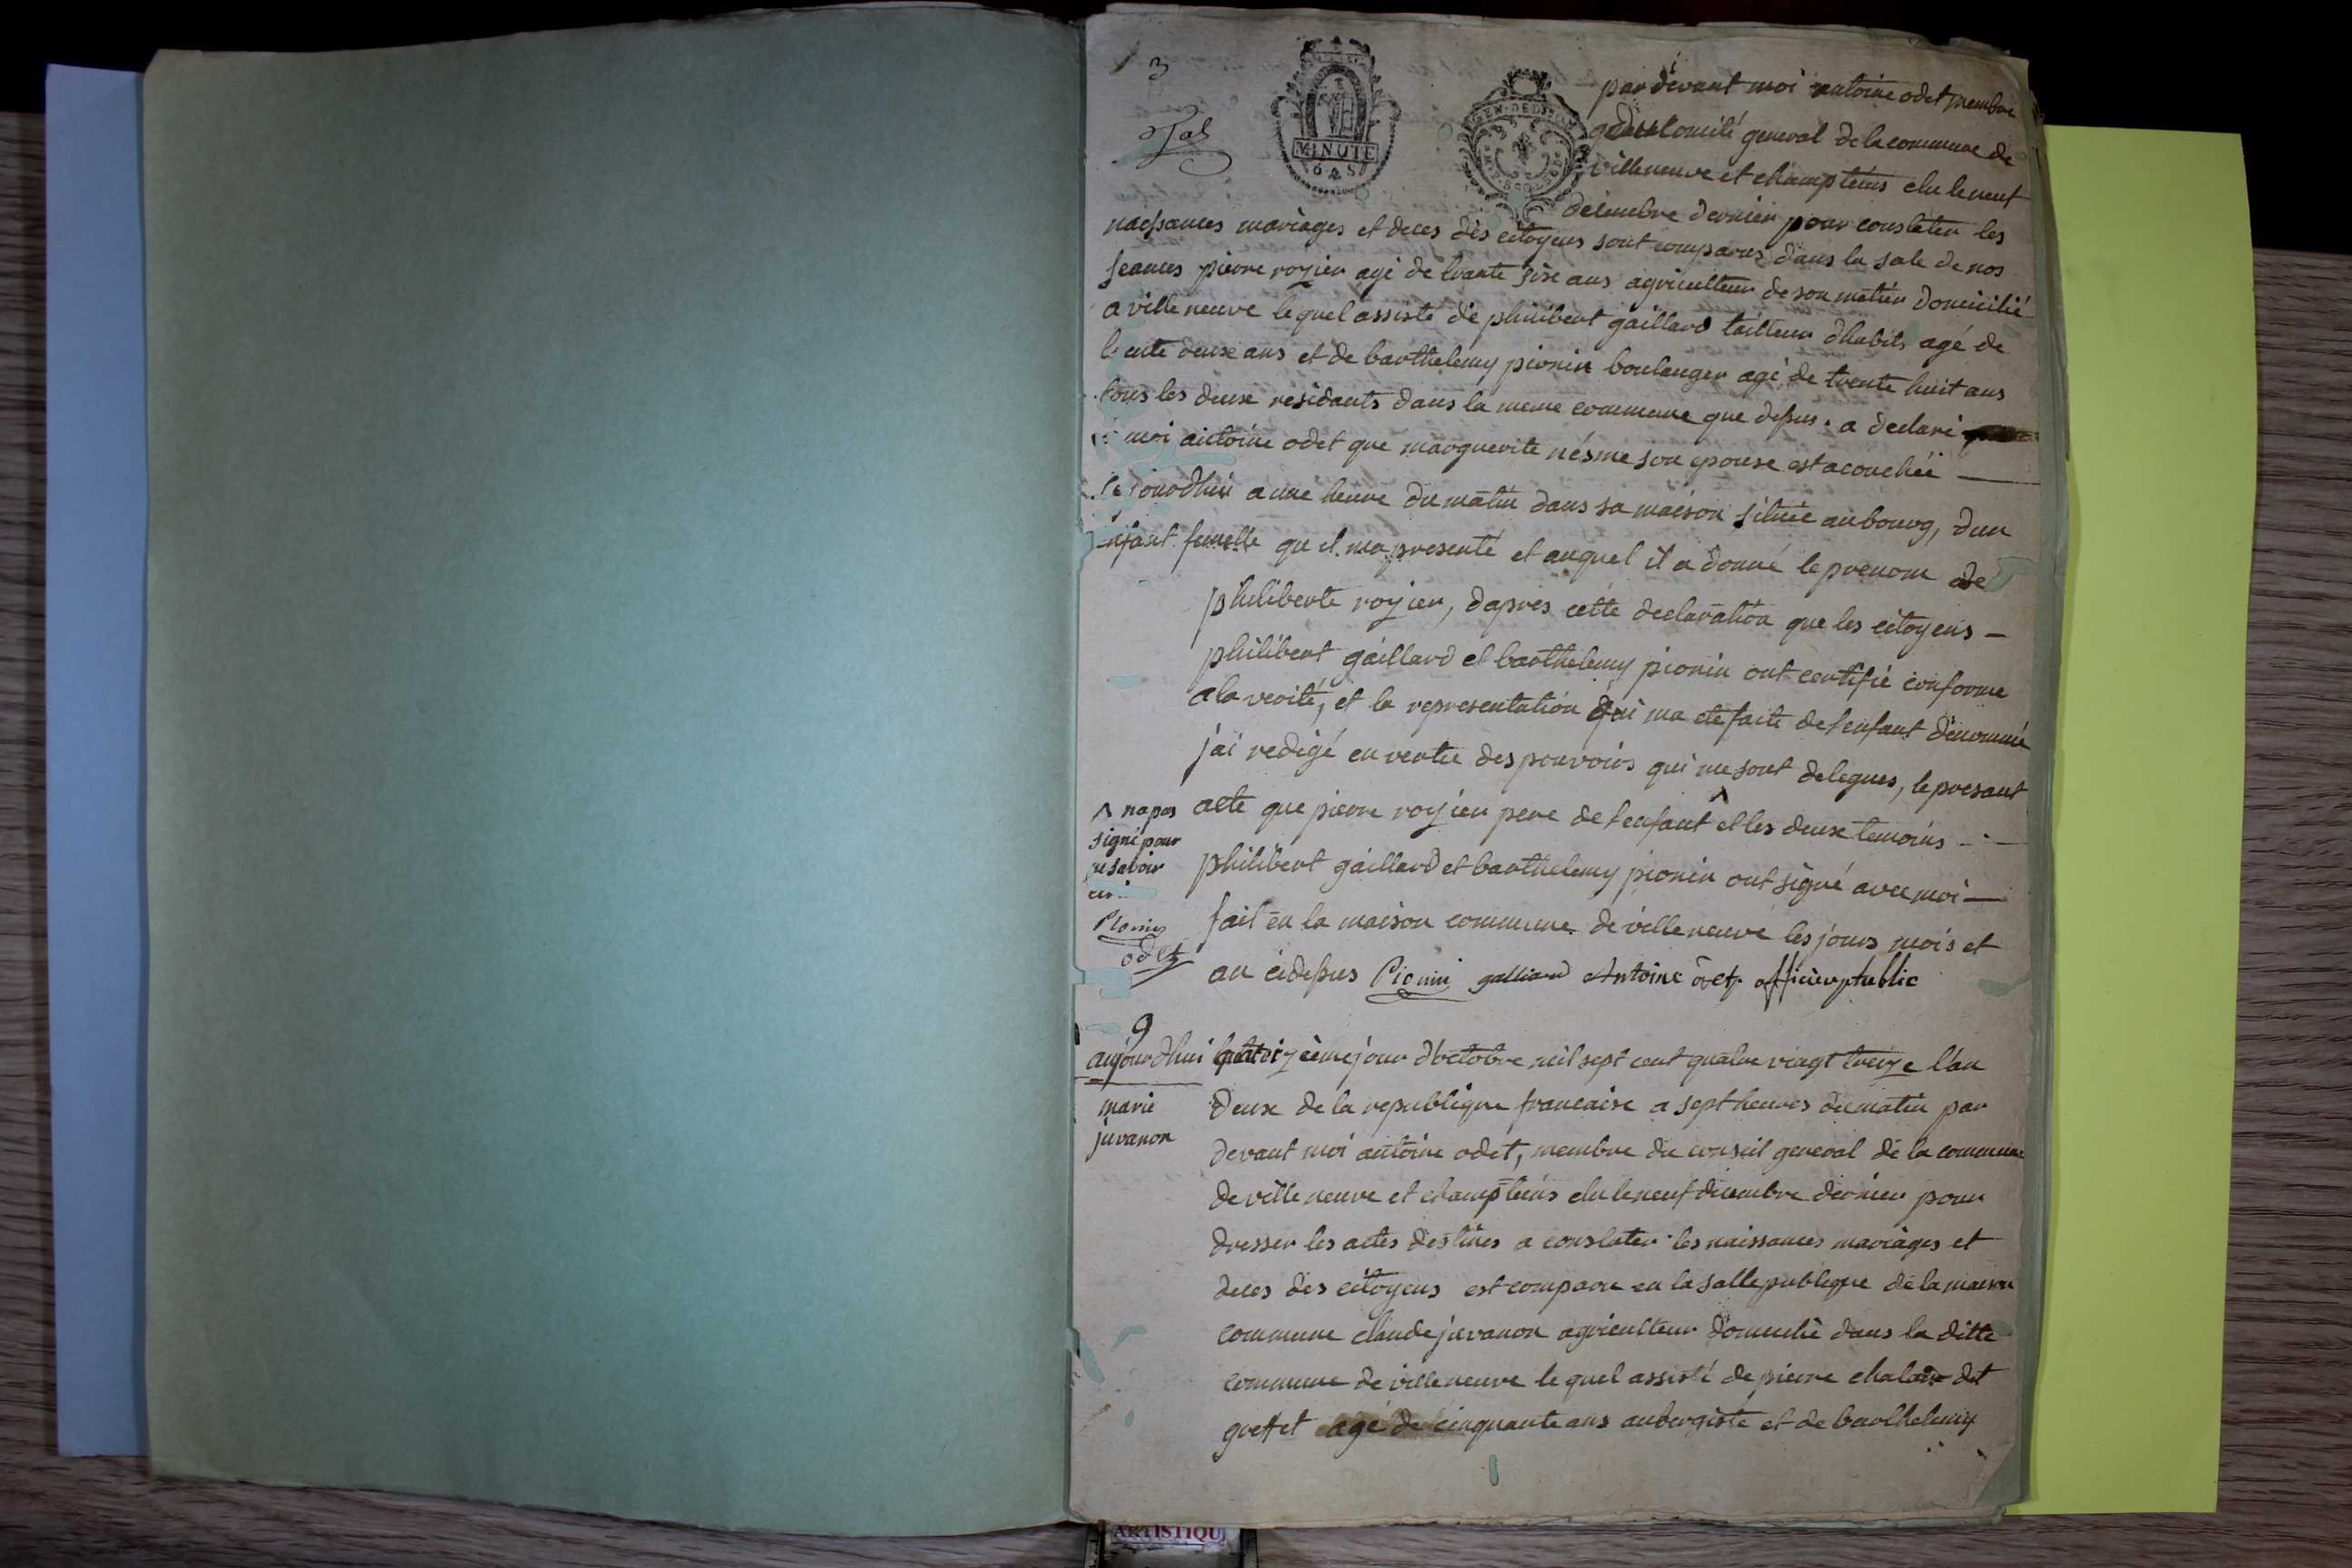 3
MINUTE
6 S
par devant moi antoine odet membre
general de la commune de
villeneuve et champteins elu le neuf
decembre dernier pour constater les
naissances mariages et deces des citoyens sont comparus dans la sale de nos
seances pierre royier agé de trante sixe ans agriculteur de son metier domicilié
a villeneuve lequel assisté de philibert gaillard tailleur dhabits agé de
trente deuxe ans et de barthelemy pionin boulanger agé de trente huit ans
tous les deuxe residants dans la meme commune que dessus. a declaré
a moi antoine odet que marguerite nésme son epouse est acouchéé
ce jourdhui a une heure du matin dans sa maison située au bourg, dun
enfant femelle qu il ma presenté et auquel il a donné le prenom de
philiberte royier, dapres cette declaration que les citoyens
philibert gaillard et barthelemy pionin ont certifié conforme
a la verité, et la representation qui ma eté faite de lenfant dénommé
jai redigé en vertu des pouvoirs qui me sont delegues, le presant
acte que pierre royier pere de lenfant et les deuxe temoins
^ na pas
signé pour
ne savoir
Pionin
odet
philibert gaillard et barthelemy pionin ont signé avec moi
fait en la maison commune de villeneuve les jours mois et
an cidessus Pionin galliard Antoine odet officier public
9
aujourdhui quatorzieme jour doctobre mil sept cent quatre vingt treize lan
marie
juvanon
deuxe de la republique francaise a sept heures du matin par
devant moi antoine odet, membre du conseil general de la commune
de villeneuve et champteins elu le neuf decembre dernier pour
dresser les actes destinés a constater les naissances mariages et
deces des citoyens est comparu en la salle publique de la maison
commune claude juvanon agriculteur domicilié dans la ditte
commune de villeneuve lequel assisté de pierre chaland dit
greffet agé de cinquante ans aubergiste et de barthelemy
ARTISTIQU